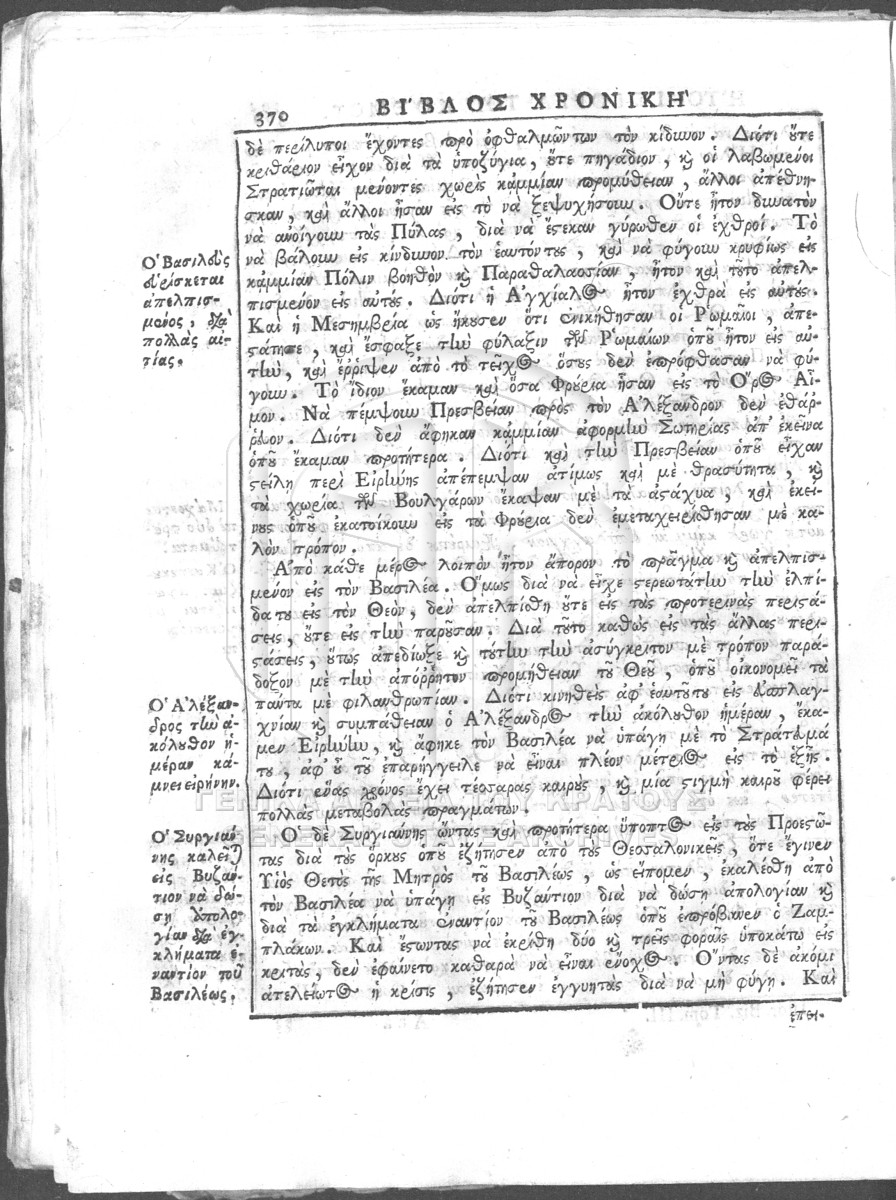 370
ΒΙ´ΒΛΟΣ ΧΡΟΝΙΚΗ´
δὲ περίλυποι ἔχοντες πρὸ ὀφθαλμῶντων τὸν κίδυνον. Διότι ὔτε
κριθάριον εἶχον διὰ τὰ ὑποζύγια, ὔτε πηγάδιον, ϗ οἱ λαβωμένοι
Στρατιῶται μένοντες χωρὶς κᾀμμίαν προμύθειαν, ἄλλοι ἀπέθνη-
σκαν, καὶ ἄλλοι ἦσαν εἰς τὸ νὰ ξεψυχήσουν. Οὔτε ἦτον δυνατὸν
νὰ ἀνοίγουν τὰς Πύλας, διὰ νὰ ἔστεκαν γύρωθεν οἱ ἐχθροί. Τὸ
νὰ βάλουν εἰς κίνδυνον τὸν ἑαυτόντους, καὶ νὰ φύγουν κρυφίως εἰς
κᾀμμίαν Πόλιν βοηθὸν ϗ Παραθαλασσίαν, ἦτον καὶ τῦτο ἀπελ-
πισμένον εἰς αὐτύς. Διότι ἡ Ἀγχίαλος ἦτον ἐχθρὰ εἰς αὐτύς.
Καὶ ἡ Μεσημβρία ὡς ἤκυσεν ὅτι ἐνικήθησαν οἱ Ῥωμαῖοι, ἀπε-
στάτησε, καὶ ἔσφαξε τὴν φύλαξιν τῶν Ῥωμαίων ὁπῦ ἦτον εἰς αὐ-
τὴν, καὶ ἔρριψεν ἀπὸ τὸ τεῖχος ὅσυς δὲν ἐπρόφθασαν νὰ φύ-
γουν. Τὸ ἴδιον ἔκαμαν καὶ ὅσα Φρύρια ἦσαν εἰς τὸ Ὄρος Αἷ-
μον. Νὰ πέμψουν Πρεσβείαν πρὸς τὸν Ἀλέξανδρον δὲν ἐθάρ-
ρευον. Διότι δὲν ἄφηκαν κᾀμμίαν ἀφορμὴν Σωτηρίας ἀπ' ἐκεῖνα
ὁπῦ ἔκαμαν προτήτερα. Διότι καὶ τὴν Πρεσβείαν ὁπῦ εἶχαν
στείλη περὶ Εἰρήνης ἀπέπεμψαν ἀτίμως καὶ μὲ θρασύτητα, ϗ
τὰ χωρία τῶν Βουλγάρων ἔκαψαν μὲ τὰ ἀστάχυα, καὶ ἐκεί-
νυς ὁπῦ ἐκατοίκουν εἰς τὰ Φρύρια δὲν ἐμεταχειρίσθησαν μὲ κα-
λὸν τρόπον.
Ἀπὸ κάθε μέρος λοιπὸν ἦτον ἄπορον τὸ πρᾶγμα ϗ ἀπελπισ-
μένον εἰς τὸν Βασιλέα. Ὅμως διὰ νὰ εἶχε στερεωτάτην τὴν ἐλπί-
δα τυ εἰς τὸν Θεὸν, δὲν ἀπελπίσθη ὔτε εἰς τὰς προτερινὰς περιστά-
σεις, ὔτε εἰς τὴν παρῦσαν. Διὰ τῦτο καθὼς εἰς τὰς ἄλλας περι-
στάσεις, ὕτως ἀπεδίωξε ϗ τύτην τὴν ἀσύγκριτον μὲ τρόπον παρά-
δοξον μὲ τὴν ἀπόρρητον προμήθειαν τῦ Θεῦ, ὁπῦ οἰκονομεῖ τὰ
πάντα μὲ φιλανθρωπίαν. Διότι κινηθεὶς ἀφ' ἑαυτῦτυ εἰς εὐσπλαγ-
χνίαν ϗ συμπάθειαν ὁ Ἀλέξανδρος τὴν ἀκόλυθον ἡμέραν, ἔκα-
μεν Εἰρήνην, ϗ ἄφηκε τὸν Βασιλέα νὰ ὑπάγῃ μὲ τὸ Στράτευμά
τυ, ἀφ' ὗ τῦ ἐπαρήγγειλε νὰ εἶναι πλέον μέτριος εἰς τὸ ἑξῆς.
Διότι ἕνας χρόνος ἔχει τέσσαρας καιρὺς, ϗ μία στιγμὴ καιρῦ φέρει
πολλὰς μεταβολὰς πραγμάτων.
Ὁ δὲ Συργιάννης ὤντας καὶ προτήτερα ὕποπτος εἰς τὺς Προεστῶ-
τας διὰ τὺς ὅρκυς ὁπῦ ἐζήτησεν ἀπὸ τὺς Θεσσαλονικεῖς, ὅτε ἔγινεν
Υἱὸς Θετὸς τῆς Μητρὸς τῦ Βασιλέως, ὡς εἴπομεν, ἐκαλέσθη ἀπὸ
τὸν Βασιλέα νὰ ὑπάγῃ εἰς Βυζάντιον διὰ νὰ δώσῃ ἀπολογίαν ϗ
διὰ τὰ ἐγκλήματα ἐναντίον τῦ Βασιλέως ὁπῦ ἐπρόβανεν ὁ Ζαμ-
πλάκων. Καὶ ἔστωντας νὰ ἐκρίθη δύο ϗ τρεῖς φοραῖς ὑποκάτω εἰς
κριτὰς, δὲν ἐφαίνετο καθαρὰ νὰ εἶναι ἔνοχος. Ὄντας δὲ ἀκόμι
ἀτελείωτος ἡ κρίσις, ἐζήτησεν ἐγγυητὰς διὰ νὰ μὴ φύγῃ. Καὶ
ἐπει-
Ὁ Βασιλεὺς
εὑρίσκεται
ἀπελπισ-
μένος, διὰ
πολλὰς αἰ-
τίας.
Ὁ Ἀλέξαν-
δρος τὴν ἀ-
κόλυθον ἡ-
μέραν κά-
μνει εἰρήνην.
Ὁ Συργιάν-
νης καλεῖται
εἰς Βυζάν-
τιον νὰ δώ-
σῃ ἀπολο-
γίαν διὰ ἐγ-
κλήματα ἐ-
ναντίον τοῦ
Βασιλέως.
ΓΕΝΙΚΑ ΑΡΧΕΙΑ ΤΟΥ ΚΡΑΤΟΥΣ
GENERAL STATE ARCHIVES